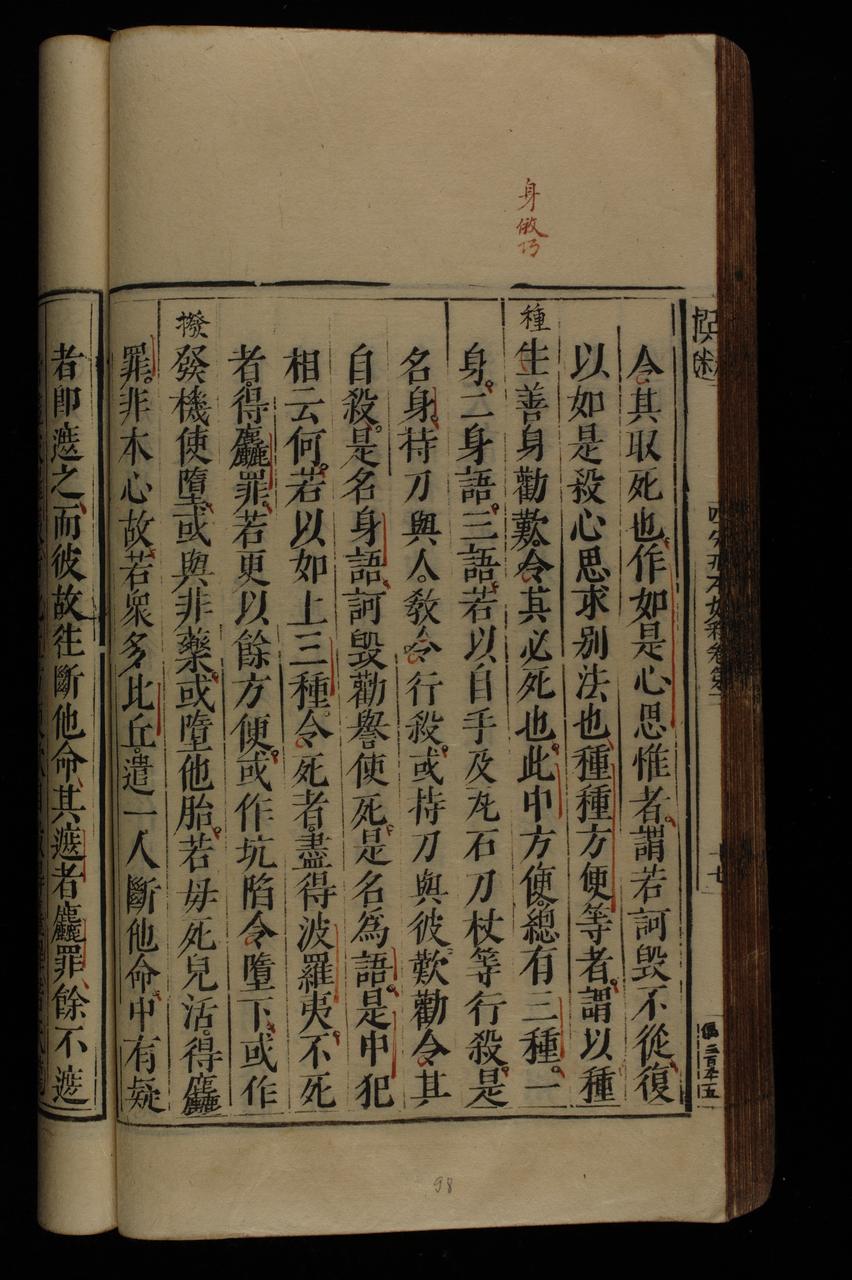 身倣巧
令其取死也作如是心思惟者謂若訶毀不從復
以如是殺心思求別法也種種方便等者謂以種
種生善身勸歎令其必死也此中方便總有三種一
身二身語三語若以自手及瓦石刀杖等行殺是
名身持刀與人教令行殺或持刀與彼歎勸令其
自殺是名身語訶毀勸譽使死是名爲語是中犯
相云何若以如上三種令死者盡得波羅夷不死
者得麤罪若更以餘方便或作坑陷令墮下或作
撥發機使墮或與非藥或墮他胎若母死兒活得麤
罪非木心故若衆多比丘遣一人斷他命中有疑
者即遮之而彼故往斷他命其遮者麤罪餘不遮
98